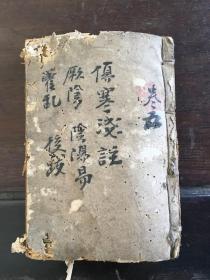 卷五
傷寒淺註
厥陰 陰陽易
霍乱 後跋